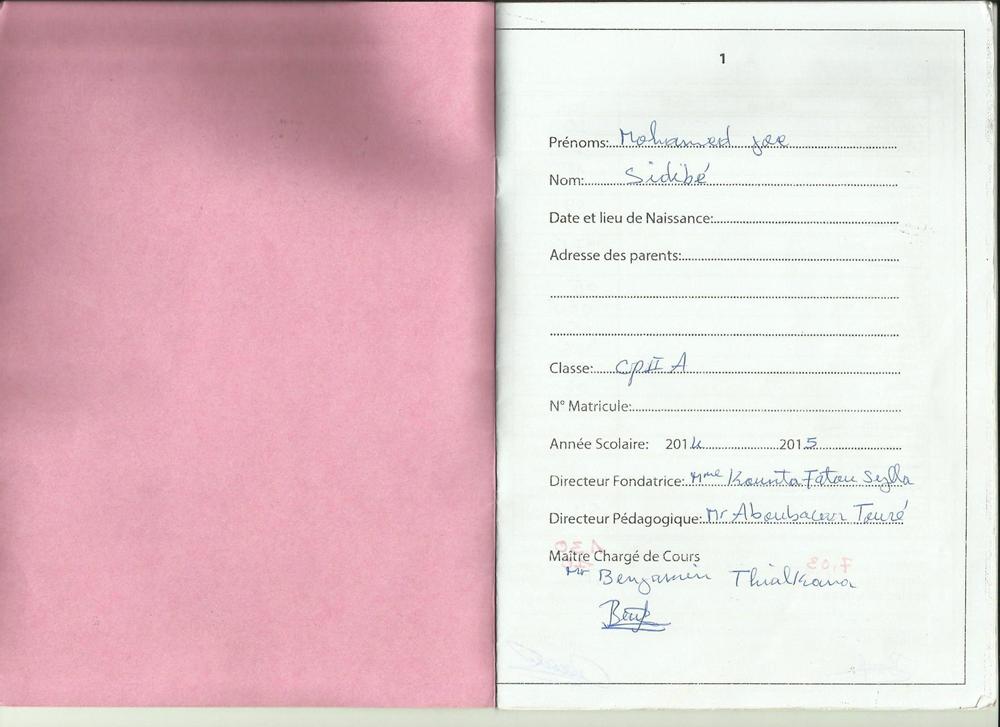 1
Prénoms: Mohamed joe
Nom: Sidibé
Date et lieu de Naissance:
Adresse des parents:
Classe: CPII A
N° Matricule:
Année Scolaire: 2014 2015
Directeur Fondatrice: Mme Kounta Fatou Sylla
Directeur Pédagogique: Mr Aboubacar Touré
Maître Chargé de Cours
Mr Benjamin